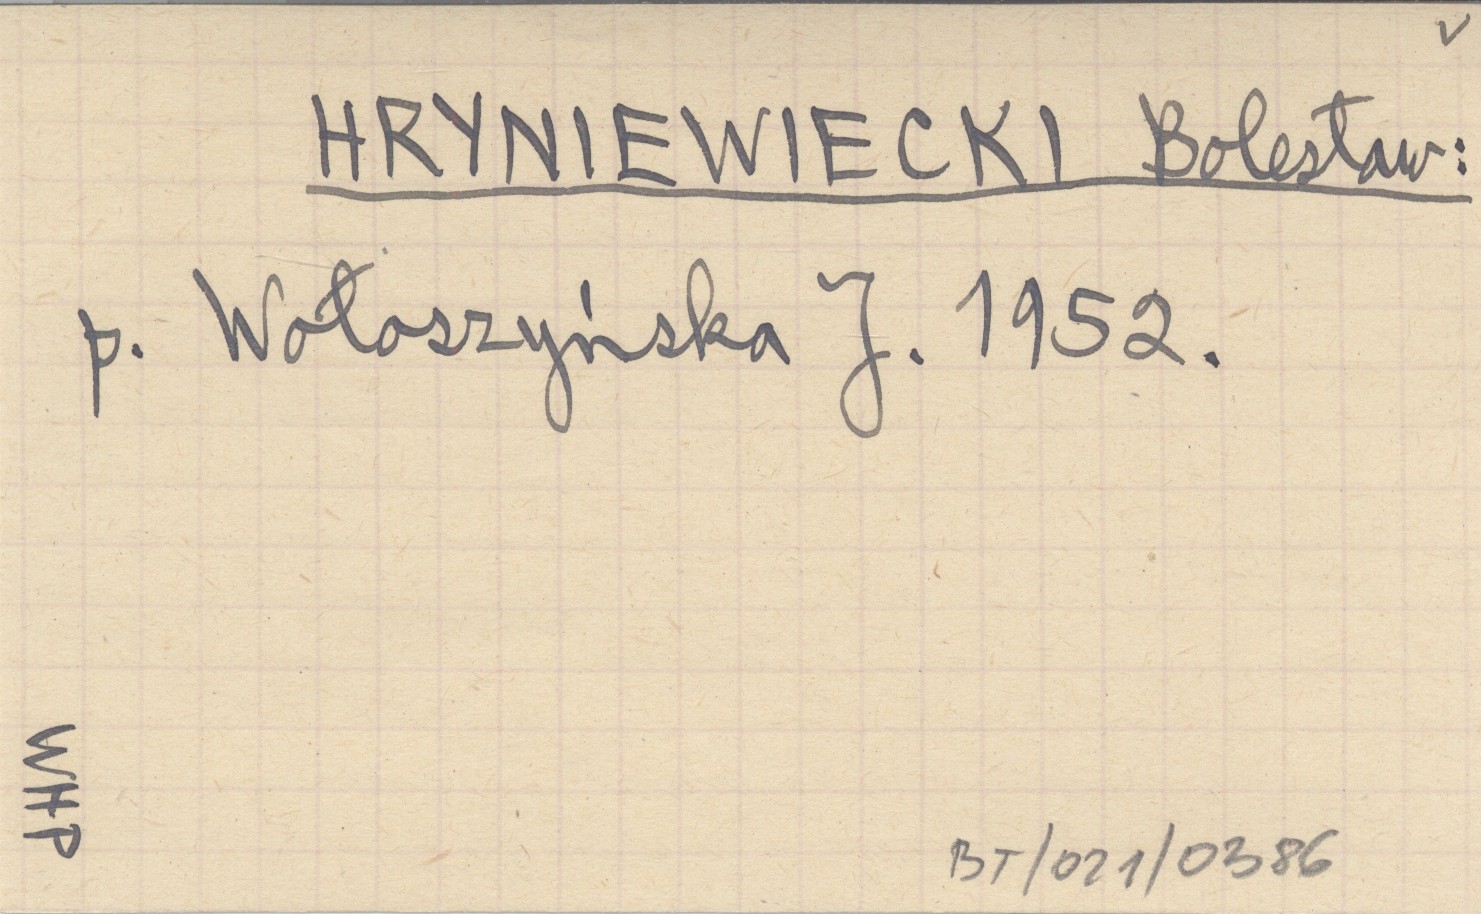 v
HRYNIEWIECKI Bolesław:
p. Wołoszyńska J. 1952.
WHP
BT/021/0386